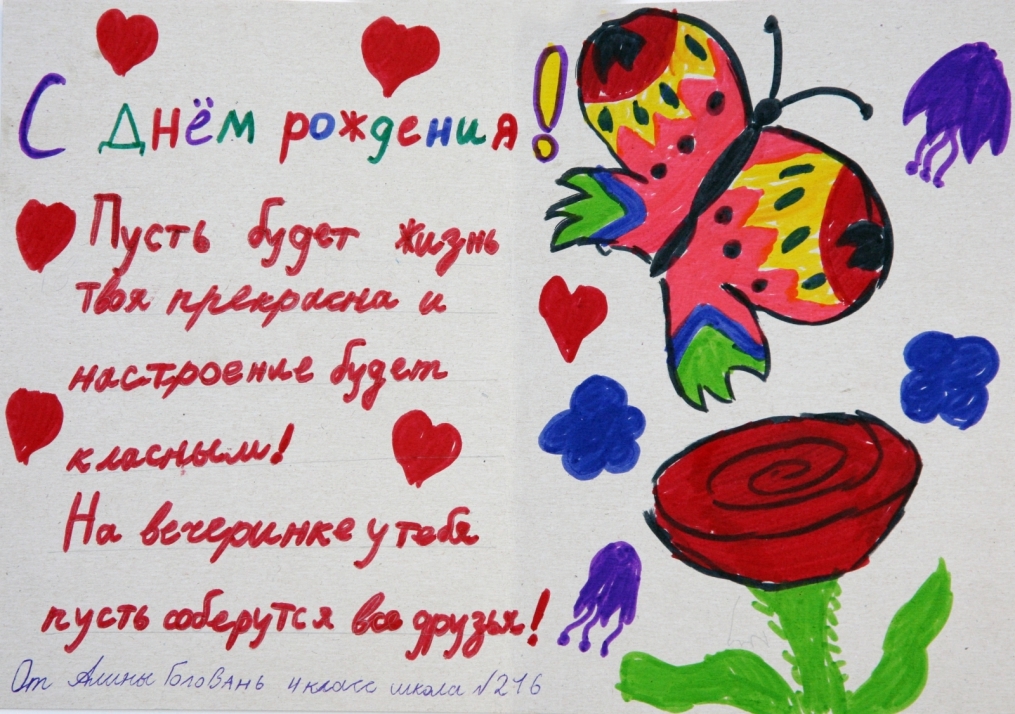 С Днём рождения!
Пусть будет жизнь
твоя прекрасна и
настроение будет
класным!
На вечеринке у тебя
пусть соберутся все друзья!
От Алины Боговань 4 класс школа №216